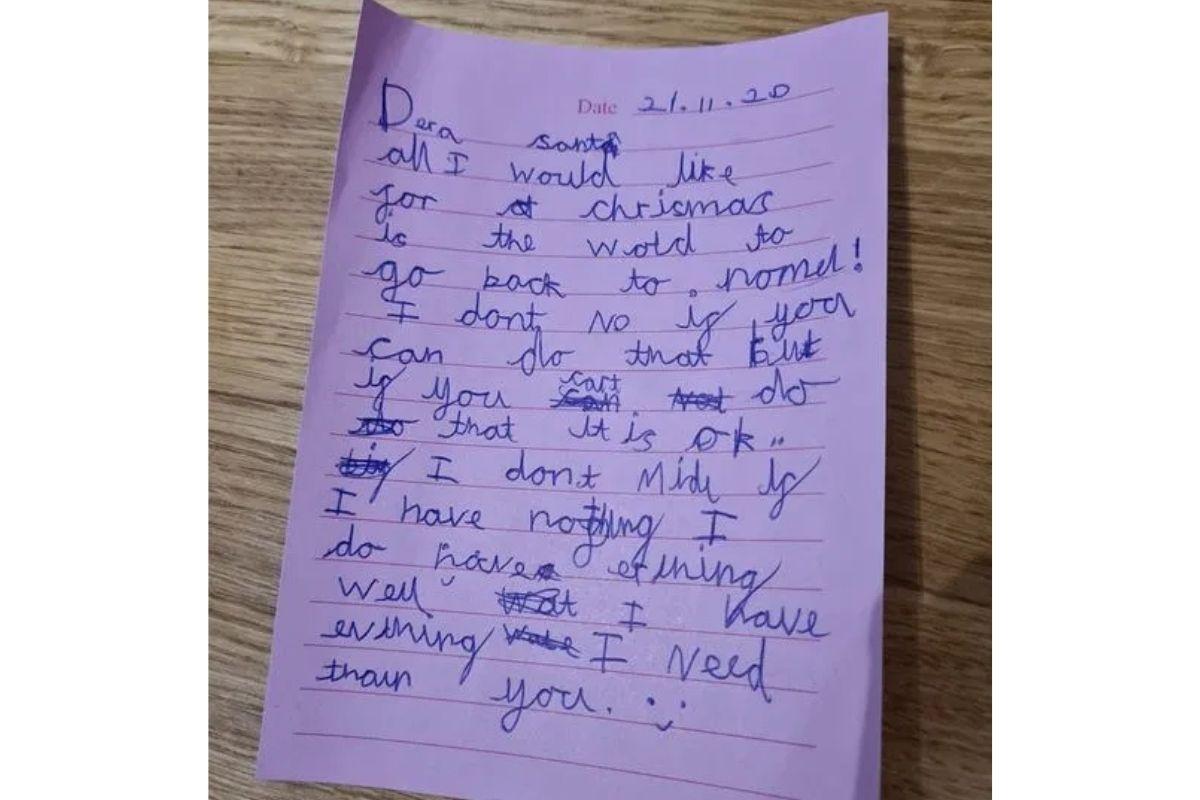 Date 21.11.20
Dera santa
all I would like
for chrismas
is the wold to
go back to nomel!
I dont no if you
can do that but
if you cart do
that it is ok..
I dont mide if
I have nothing I
do have erthing
well I have
evrthing I need
than you.